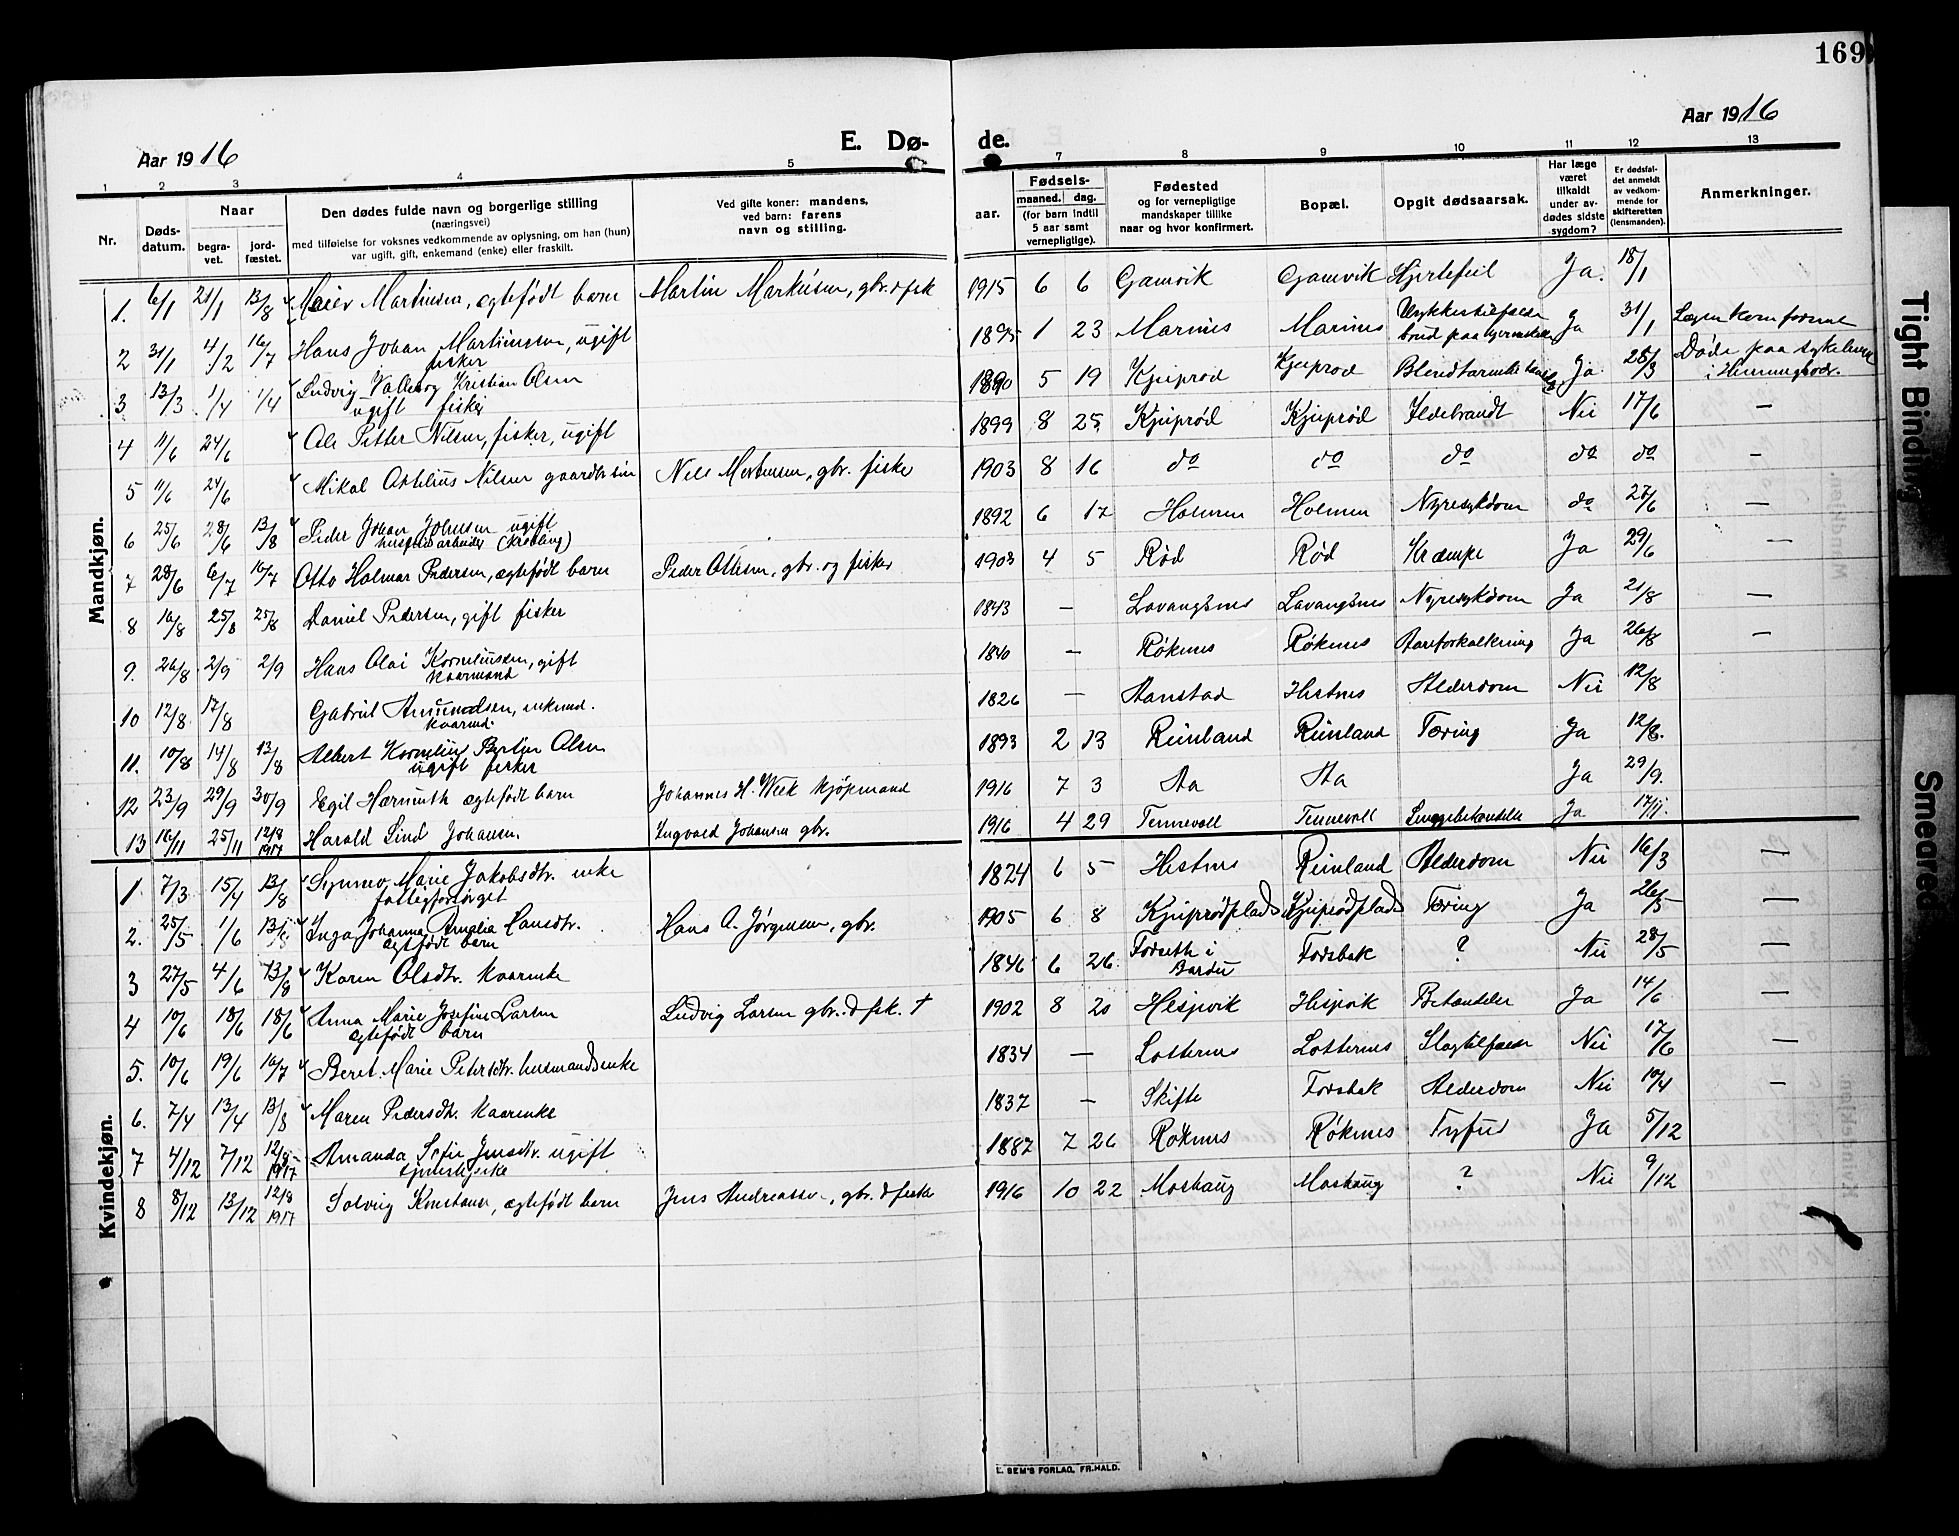 169
Aar 1916
E. Dø-
de.
Aar 1916
1 2 3 4 5 7 8 9 10 11 12 13
Nr.
Døds-
datum.
Naar
begra-
vet.
jord-
fæstet.
Den dødes fulde navn og borgerlige stilling
(næringsvei)
med tilføielse for voksnes vedkommende av oplysning, om han (hun)
var ugift, gift, enkemand (enke) eller fraskilt.
Ved gifte koner: mandens,
ved barn: farens
navn og stilling.
Fødsels-
aar. maaned. dag.
(for barn indtil
5 aar samt
vernepligtige).
Fødested
og for vernepligtige
mandskaper tillike
naar og hvor konfirmert.
Bopæl.
Opgit dødsaarsak.
Har læge
været
tilkaldt
under av-
dødes sidste
sygdom?
Er dødsfal-
det anmeldt
av vedkom-
mende for
skifteretten
(lensmanden).
Anmerkninger.
Mandkjøn.
1. 6/1 21/1 13/8 Meier Martinsen, egtefødt barn Martin Markusen, gbr. & fsk 1915 6 6 Gamvik Gamvik Hjertefeil Ja. 18/1
2 31/1 4/2 16/7 Hans Johan Martinussen, ugift
fisker 1895 1 23 Marines Marines Ja 31/1
3 13/3 1/4 1/4 Ludvig Kristian Olsen
ugift fisker 1890 5 19 Kjeiprod Kjeiprod Ja 28/3 Døde paa sykehuse
4 11/6 24/6 Ole Petter Nilsen, fisker, ugift 1899 8 25 Kjeiprød Kjeiprød Ildebrandt Nei 17/6 —
5 11/6 24/6 Mikal Nilsen Nels Mortensen, gbr. fisker 1903 8 16 do do do do do –
6 25/6 28/6 13/8 Peder Johan Johnsen ugift
(Krøbling) 1892 6 17 Holmen Holmen Nyresykdom do 27/6 —
7 28/6 6/7 16/7 Otto Holmar Pedersen, egtefødt barn Peder Ottesen, gbr. og fisker 1903 4 5 Rød Rød Krampe Ja 29/6 —
8 16/8 25/8 25/8 Daniel Pedersen, gift fisker 1843 — Lavangsnes Lavangsnes Nyresykdom Ja 21/8 —
9. 26/8 2/9 2/9 Hans Olai Korneliussen, gift
Kaarmand 1840 — Røkenes Røkenes Aareforkalkning Ja 26/8 —
10 12/8 17/8 Gabriel Amundsen, enkemd.
Kaarmd. 1826 — Aanstad Hestnes Alderdom Nei 12/8
11. 10/8 14/8 13/8 Albert Kornelius Olsen
ugift fisker 1893 2 13 Reinland Reinland Tæring Ja 12/8.
12 23/9 29/9 30/9 Egil Hærmuth egtefødt barn Johannes H. Week kjøpmand 1916 7 3 Aa Aa Ja 29/9.
13 16/11 25/11 12/8 1917 Harald Lind Johansen Ingvald Johansen gbr. 1916 4 29 Tennevoll Tennevoll Lungebetændelse Ja 17/11.
Kvindekjøn.
1 7/3 15/4 13/8 Synnøv Marie Jakobsdtr. enke
fattigforsørget 1824 6 5 Hestnes Reinland Alderdom Nei 16/3 —
2. 25/5 1/6 13/8 Inga Johanna Amalia Hansdtr.
egtefødt barn Hans A. Jørgensen, gbr. 1905 6 8 Kjeiprødplads Kjeiprødplads Tæring Ja 26/5 —
3 27/5 4/6 13/8 Karen Olsdtr. Kaarenke 1846 6 26 Forseth i
Bardu Fossbak ? Nei 28/5 —
4 10/6 18/6 18/6 Anna Marie Josefine Larsen
egtefødt barn Ludvig Larsen gbr. & fsk. † 1902 8 20 Hesjevik Hesjevik Betændelse Ja 14/6 —
5. 10/6 19/6 16/7 Beret Marie Petersdtr. husmandsenke 1834 — Lotternes Lotternes Slagtilfælde Nei 17/6 —
6. 7/4 13/4 13/8 Maren Pedersdtr. Kaarenke 1837 — Skifte Fossbak Alderdom Nei 10/4 –
7 4/12 7/12 12/8 1917 Amanda Sofie Jensdtr. ugift
tjenestepike 1887 7 26 Røkenes Røkenes Tyfus Ja 5/12
8 8/12 13/12 12/8 1917 Solveig Konstanse, egtefødt barn Jens Andreassen, gbr. & fisker 1916 10 22 Moshaug Moshaug ? Nei 9/12
E. SEM'S FORLAG, FR.HALD.
Tight Binding
Smeared